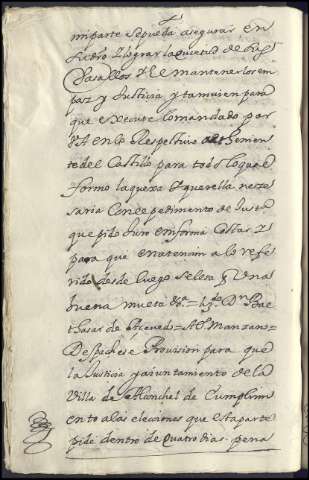 mi parte se pueda asegurar en
su dro y lograr la quietud de sus
Vasallos y el mantenerlos en
paz y Justicia y tamvien para
que execute lo mandado por
VA en lo Respectivo al thenien
te del Castillo para todo lo qual
formo la quexa y querella neze
saria con el pedimento de Justa
que pido Juro en forma Costas y
para que en atencion a lo refe
rido desde luego se les a Una
buena multa = Dn Bal
thasar de Azevedo = Manzano =
Despachese Provision para que
la Justicia y aiuntamiento de la
Villa de Monchel de Cumplim
ento a las eleciones que esta parte
pide dentro de quatro dias pena